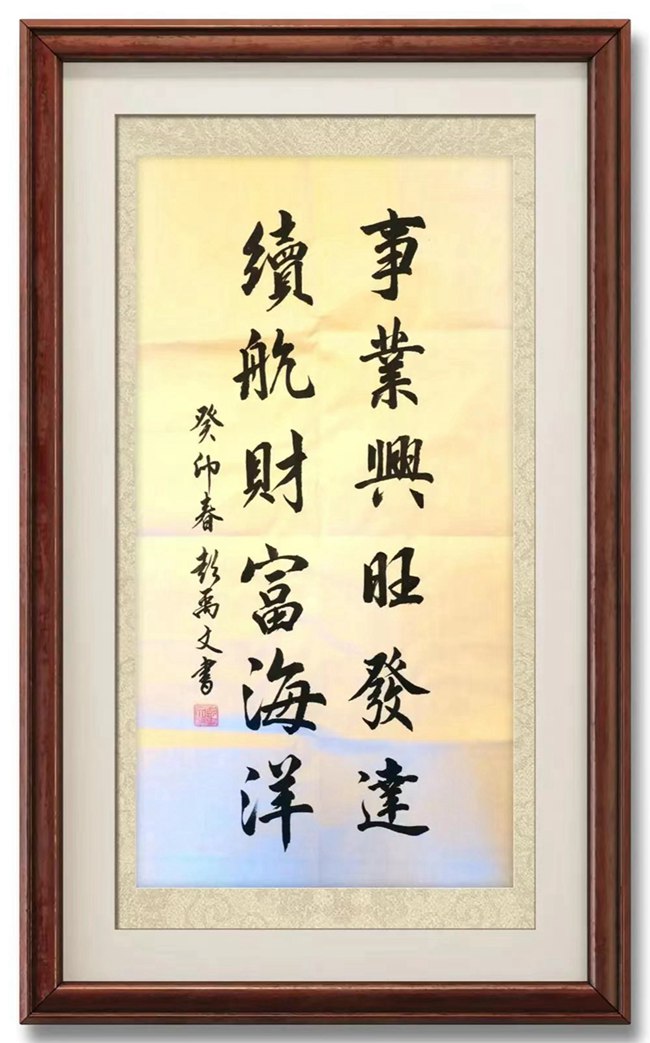 事業興旺發達
續航財富海洋
癸卯春 彭禹文書